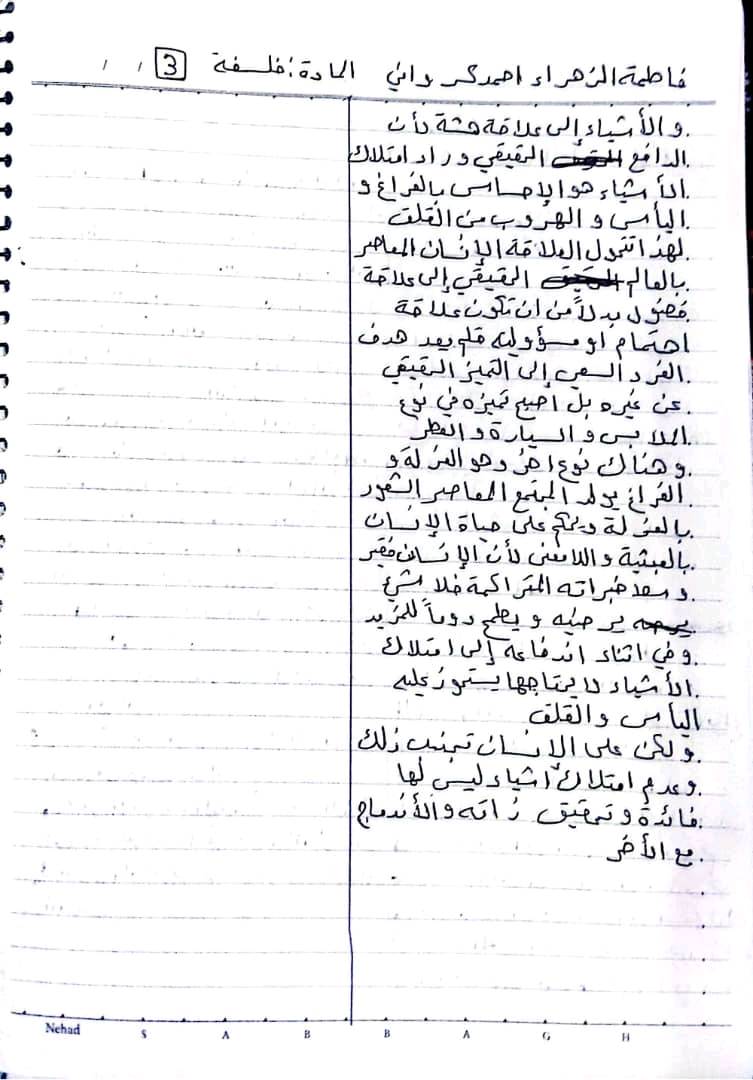 فاطمة الزهراء احمد كرواني المادة: فلسفة 3 / /
و الأشياء إلى علاقة هشة لأن
الدافع الحقيقي وراد امتلاك
الأشياء هو الإحساس بالفراغ و
اليأس و الهروب من القلق
لهذا تتحول العلاقة الإنسان المعاصر
بالعالم الحقيقي إلى علاقة
فضول بدلاً من ان تكون علاقة
احتمام او مسؤوليه فلم يعد هدف
الفرد السعي إلى التميز الحقيقي
عن غيره بل أصبح تميزه في نوع
الملابس و السيارة و العطر
و هناك نوع اخر وهو العزلة و
الفراغ يولد المجتمع المعاصر الشعور
بالعزلة ويحكم على حياة الإنسان
بالعبثية و اللامعنى لأن الإنسان فقير
خبراته المتراكمة فلا شيئ
يرضيه و يطمح دوماً للمزيد
وفي اثناء اندفاعه إلى امتلاك
الأشياء لا يحتاجها يستحوز عليه
اليأس والقلق
و لكن على الإنسان تجنب ذلك
وعدم امتلاك أشياء ليس لها
فائدة و تحقيق ذاته و الأندماج
مع الأخر
Nehad S A B B A G H